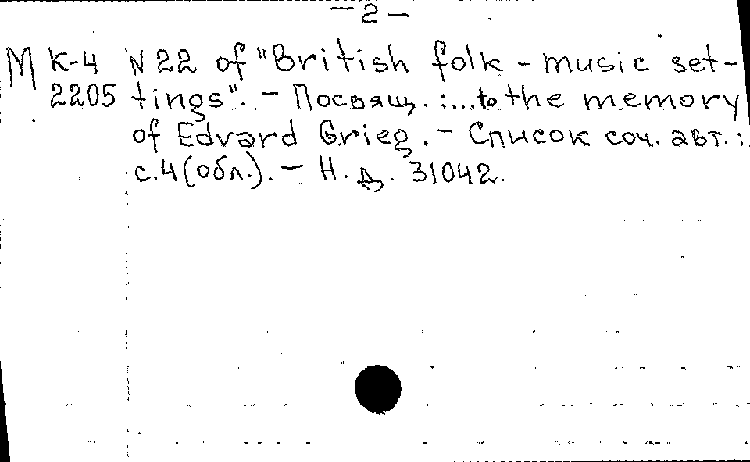 — 2 —
М К-4 N 22 of "British folk - music set-
2205 tings". - Посвящ. :...to the memory
of Edvard Grieg. - Список соч. авт.:
с.4 (обл.). - Н. д. 31042.